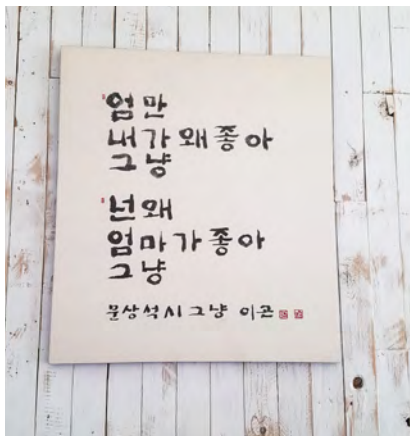 엄만
내가 왜 좋아
그냥
넌 왜
엄마가 좋아
그냥
문상석 시 그냥 이곤